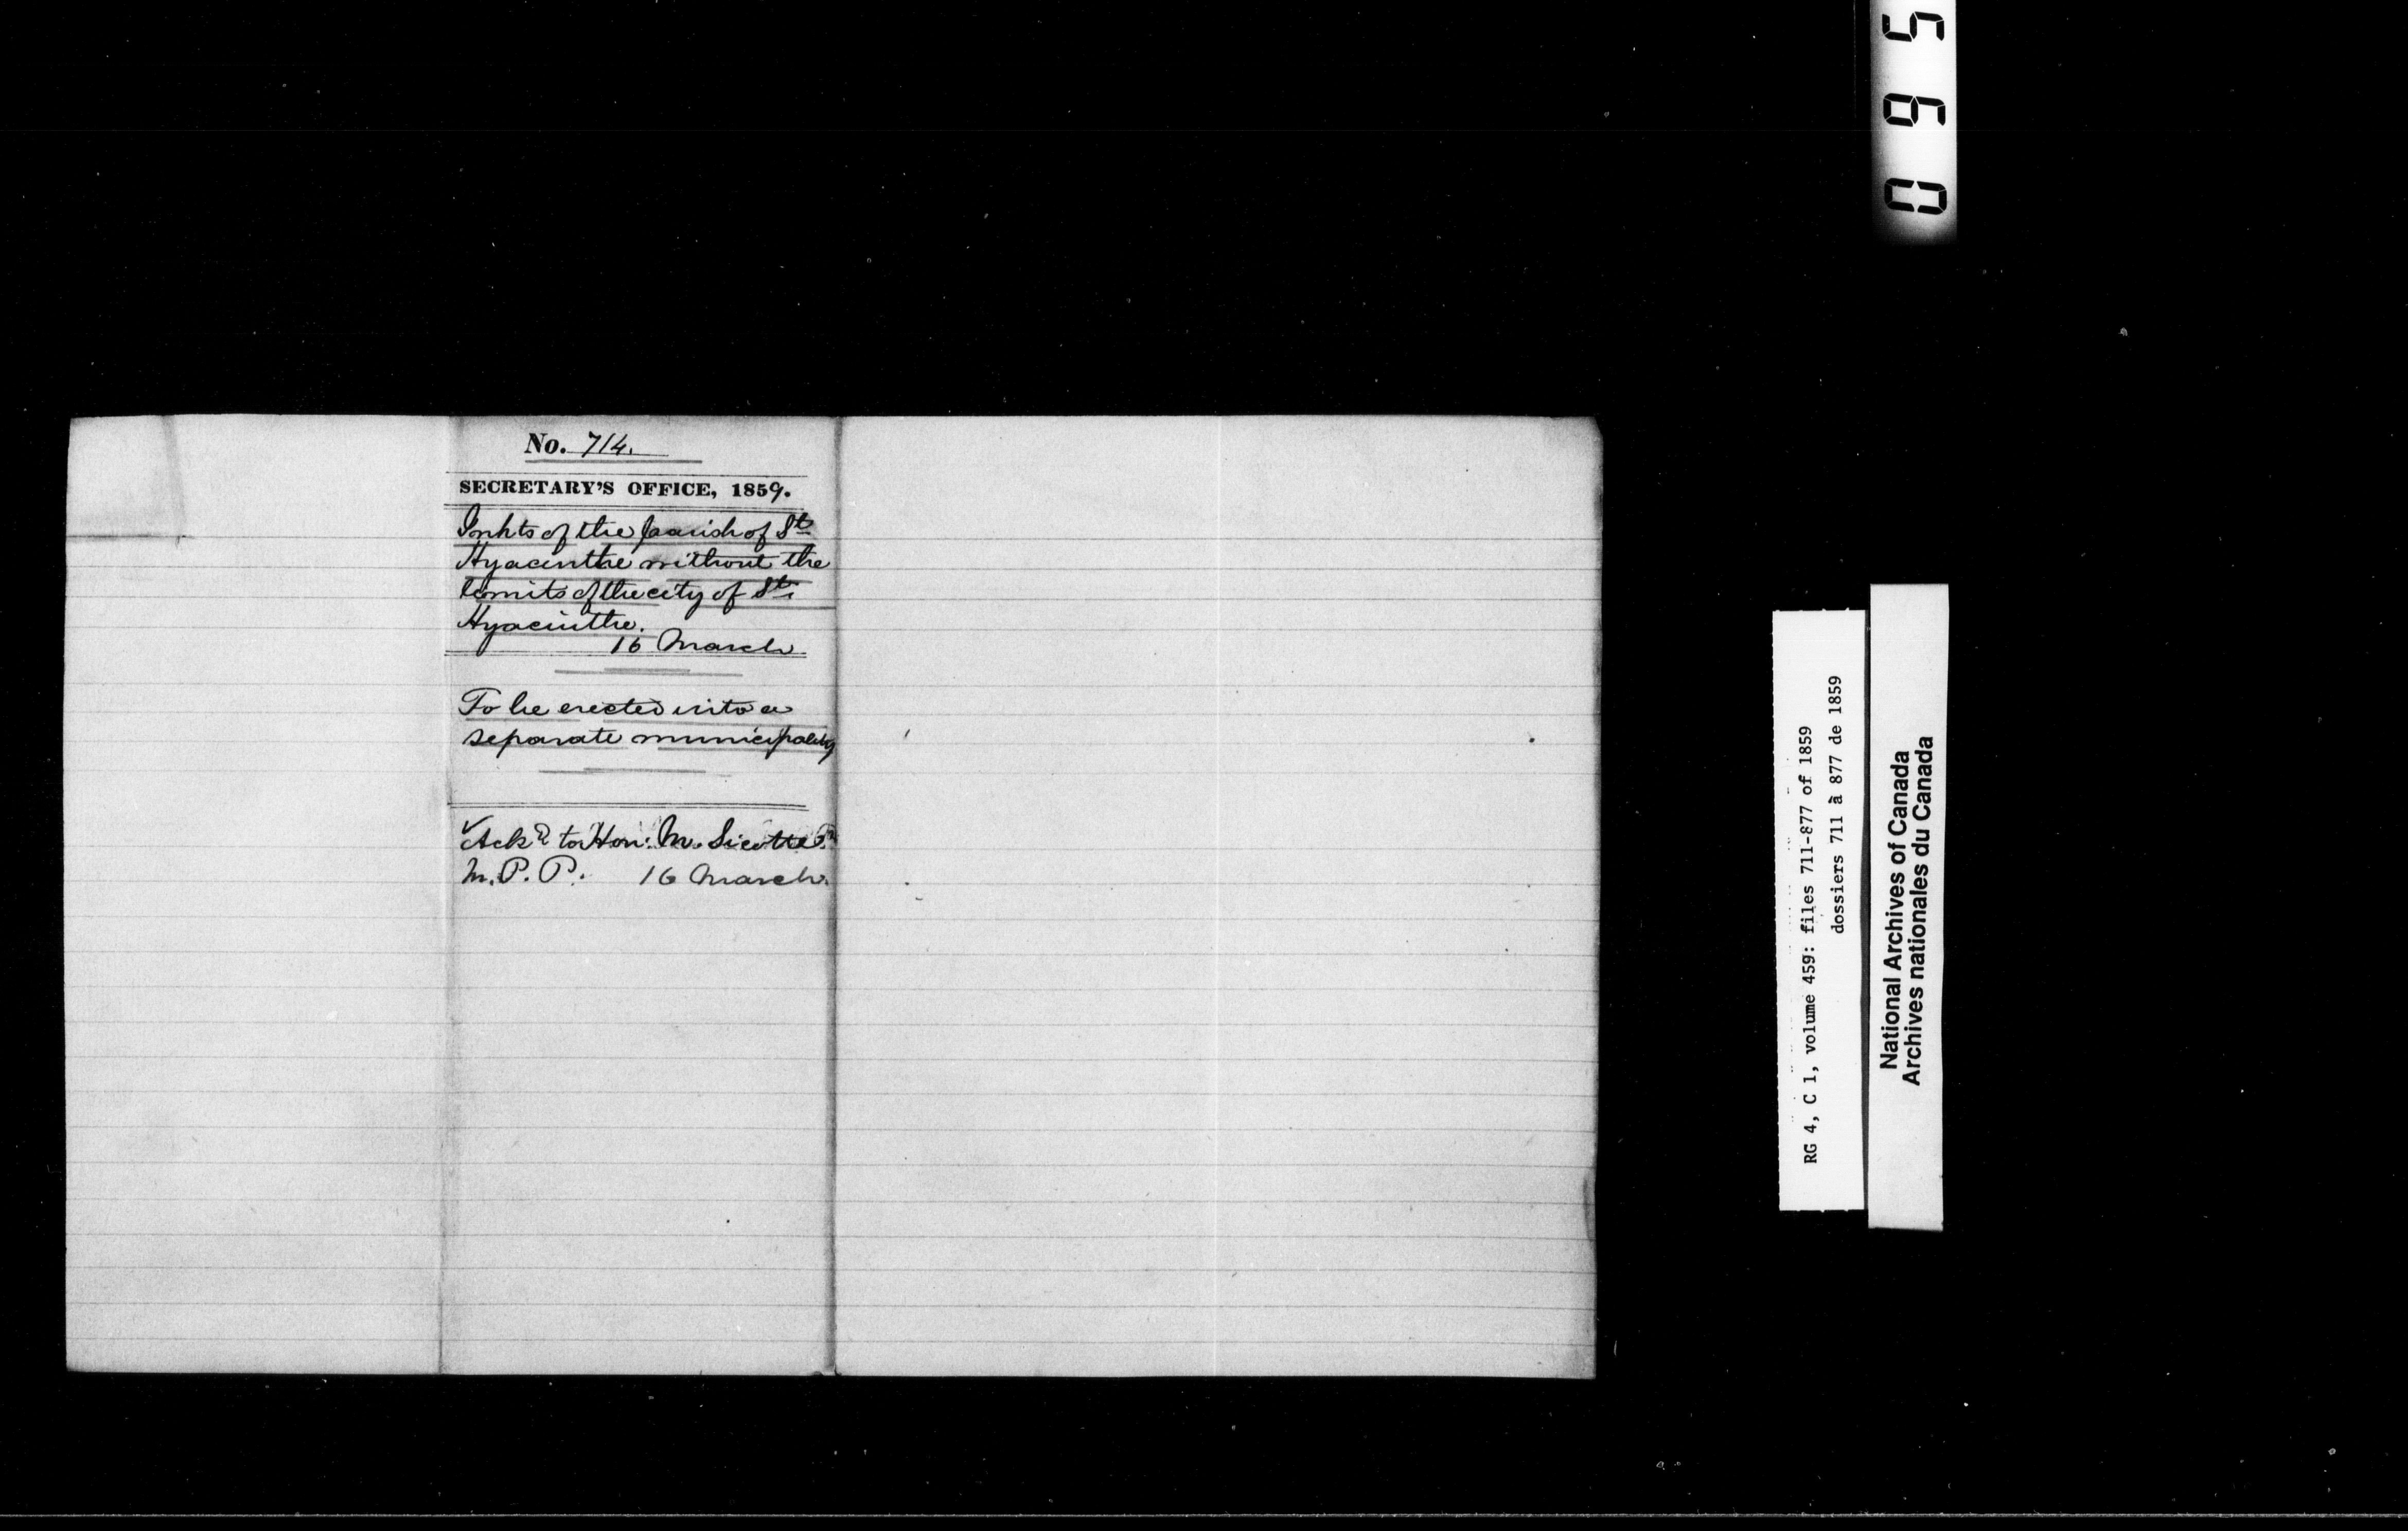 No. 714.
SECRETARY'S OFFICE, 1859.
Inhts of the parish of St
Hyacinthe without the
limits of the city of St.
Hyacinthe.
16 March
To be erected into a
separate municipality
Ackd to Hon: M. Sicotte
M.P.P. 16 March.
0695
RG 4, C 1, volume 459: files 711-877 of 1859
dossiers 711 à 877 de 1859
National Archives of Canada
Archives nationales du Canada